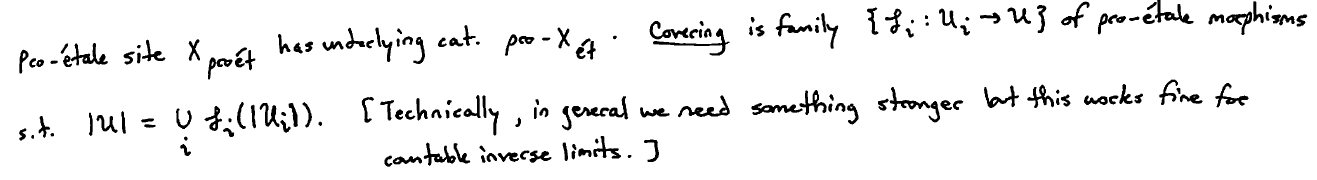 Pro-étale site X_proét has underlying cat. pro-X_ét. Covering is family {f_i : U_i → U} of pro-étale morphisms
s.t. |U| = ∪_i f_i(|U_i|). [Technically, in general we need something stronger but this works fine for
countable inverse limits.]